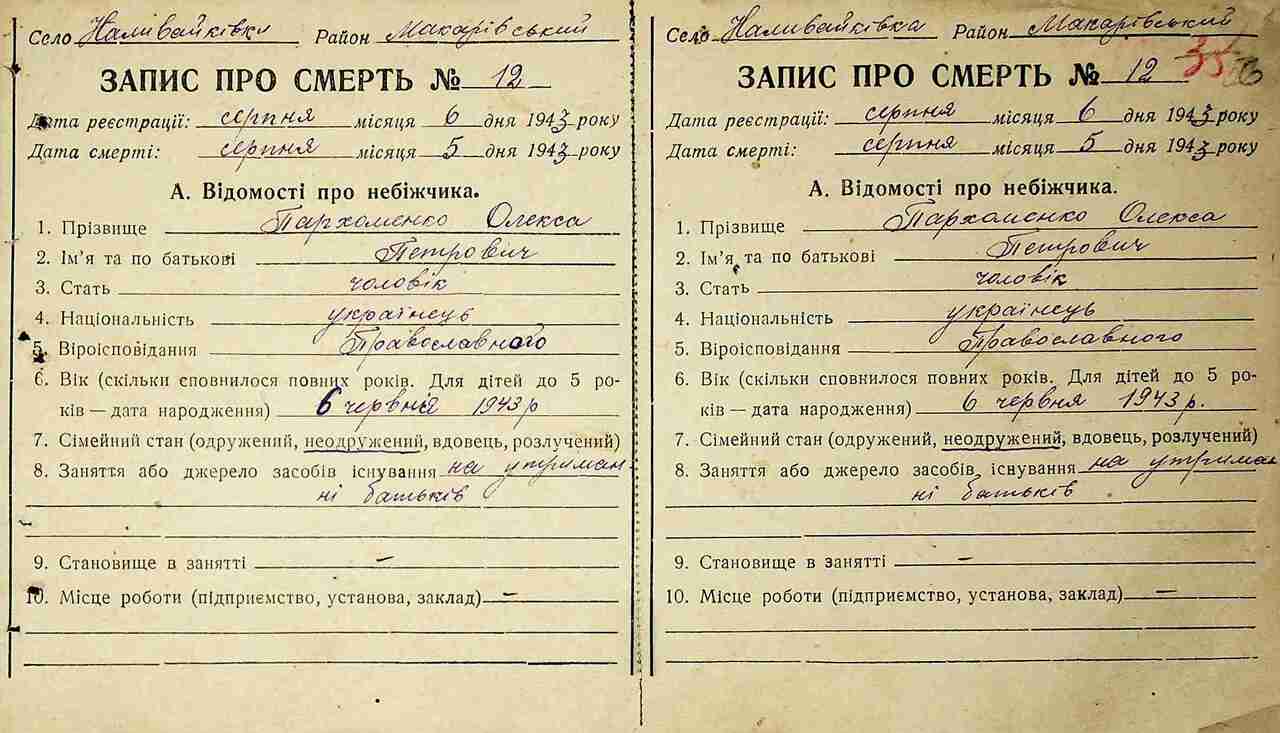 Село Наливайківка Район Макарівський
ЗАПИС ПРО СМЕРТЬ № 12
Дата реєстрації: серпня місяця 6 дня 1943 року
Дата смерті: серпня місяця 5 дня 1943 року
А. Відомості про небіжчика.
1. Прізвище Пархоменко Олекса
2. Ім'я та по батькові Петрович
3. Стать чоловік
4. Національність українець
5. Віроісповідання Православного
6. Вік (скільки сповнилося повних років. Для дітей до 5 ро-
ків — дата народження) 6 червня 1943 р
7. Сімейний стан (одружений, неодружений, вдовець, розлучений)
8. Заняття або джерело засобів існування на утриман
ні батьків
9. Становище в занятті —
10. Місце роботи (підприємство, установа, заклад) —
Село Наливайківка Район Макарівський
ЗАПИС ПРО СМЕРТЬ № 12 35
Дата реєстрації: серпня місяця 6 дня 1943 року
Дата смерті: серпня місяця 5 дня 1943 року
А. Відомості про небіжчика.
1. Прізвище Пархоменко Олекса
2. Ім'я та по батькові Петрович
3. Стать чоловік
4. Національність українець
5. Віроісповідання Православного
6. Вік (скільки сповнилося повних років. Для дітей до 5 ро-
ків — дата народження) 6 червня 1943 р.
7. Сімейний стан (одружений, неодружений, вдовець, розлучений)
8. Заняття або джерело засобів існування на утриман
ні батьків
9. Становище в занятті —
10. Місце роботи (підприємство, установа, заклад) —